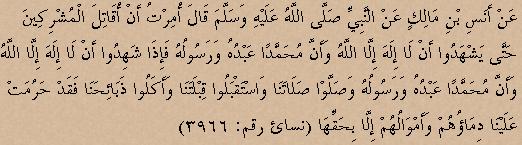 عَنْ أَنَسِ بْنِ مَالِكٍ عَنْ النَّبِيِّ صَلَّى اللَّهُ عَلَيْهِ وَسَلَّمَ قَالَ أُمِرْتُ أَنْ أُقَاتِلَ الْمُشْرِكِينَ
حَتَّى يَشْهَدُوا أَنْ لَا إِلَهَ إِلَّا اللَّهُ وَأَنَّ مُحَمَّدًا عَبْدُهُ وَرَسُولُهُ فَإِذَا شَهِدُوا أَنْ لَا إِلَهَ إِلَّا اللَّهُ
وَأَنَّ مُحَمَّدًا عَبْدُهُ وَرَسُولُهُ وَصَلَّوْا صَلَاتَنَا وَاسْتَقْبَلُوا قِبْلَتَنَا وَأَكَلُوا ذَبَائِحَنَا فَقَدْ حَرُمَتْ
عَلَيْنَا دِمَاؤُهُمْ وَأَمْوَالُهُمْ إِلَّا بِحَقِّهَا (نسائ رقم: ٣٩٦٦)